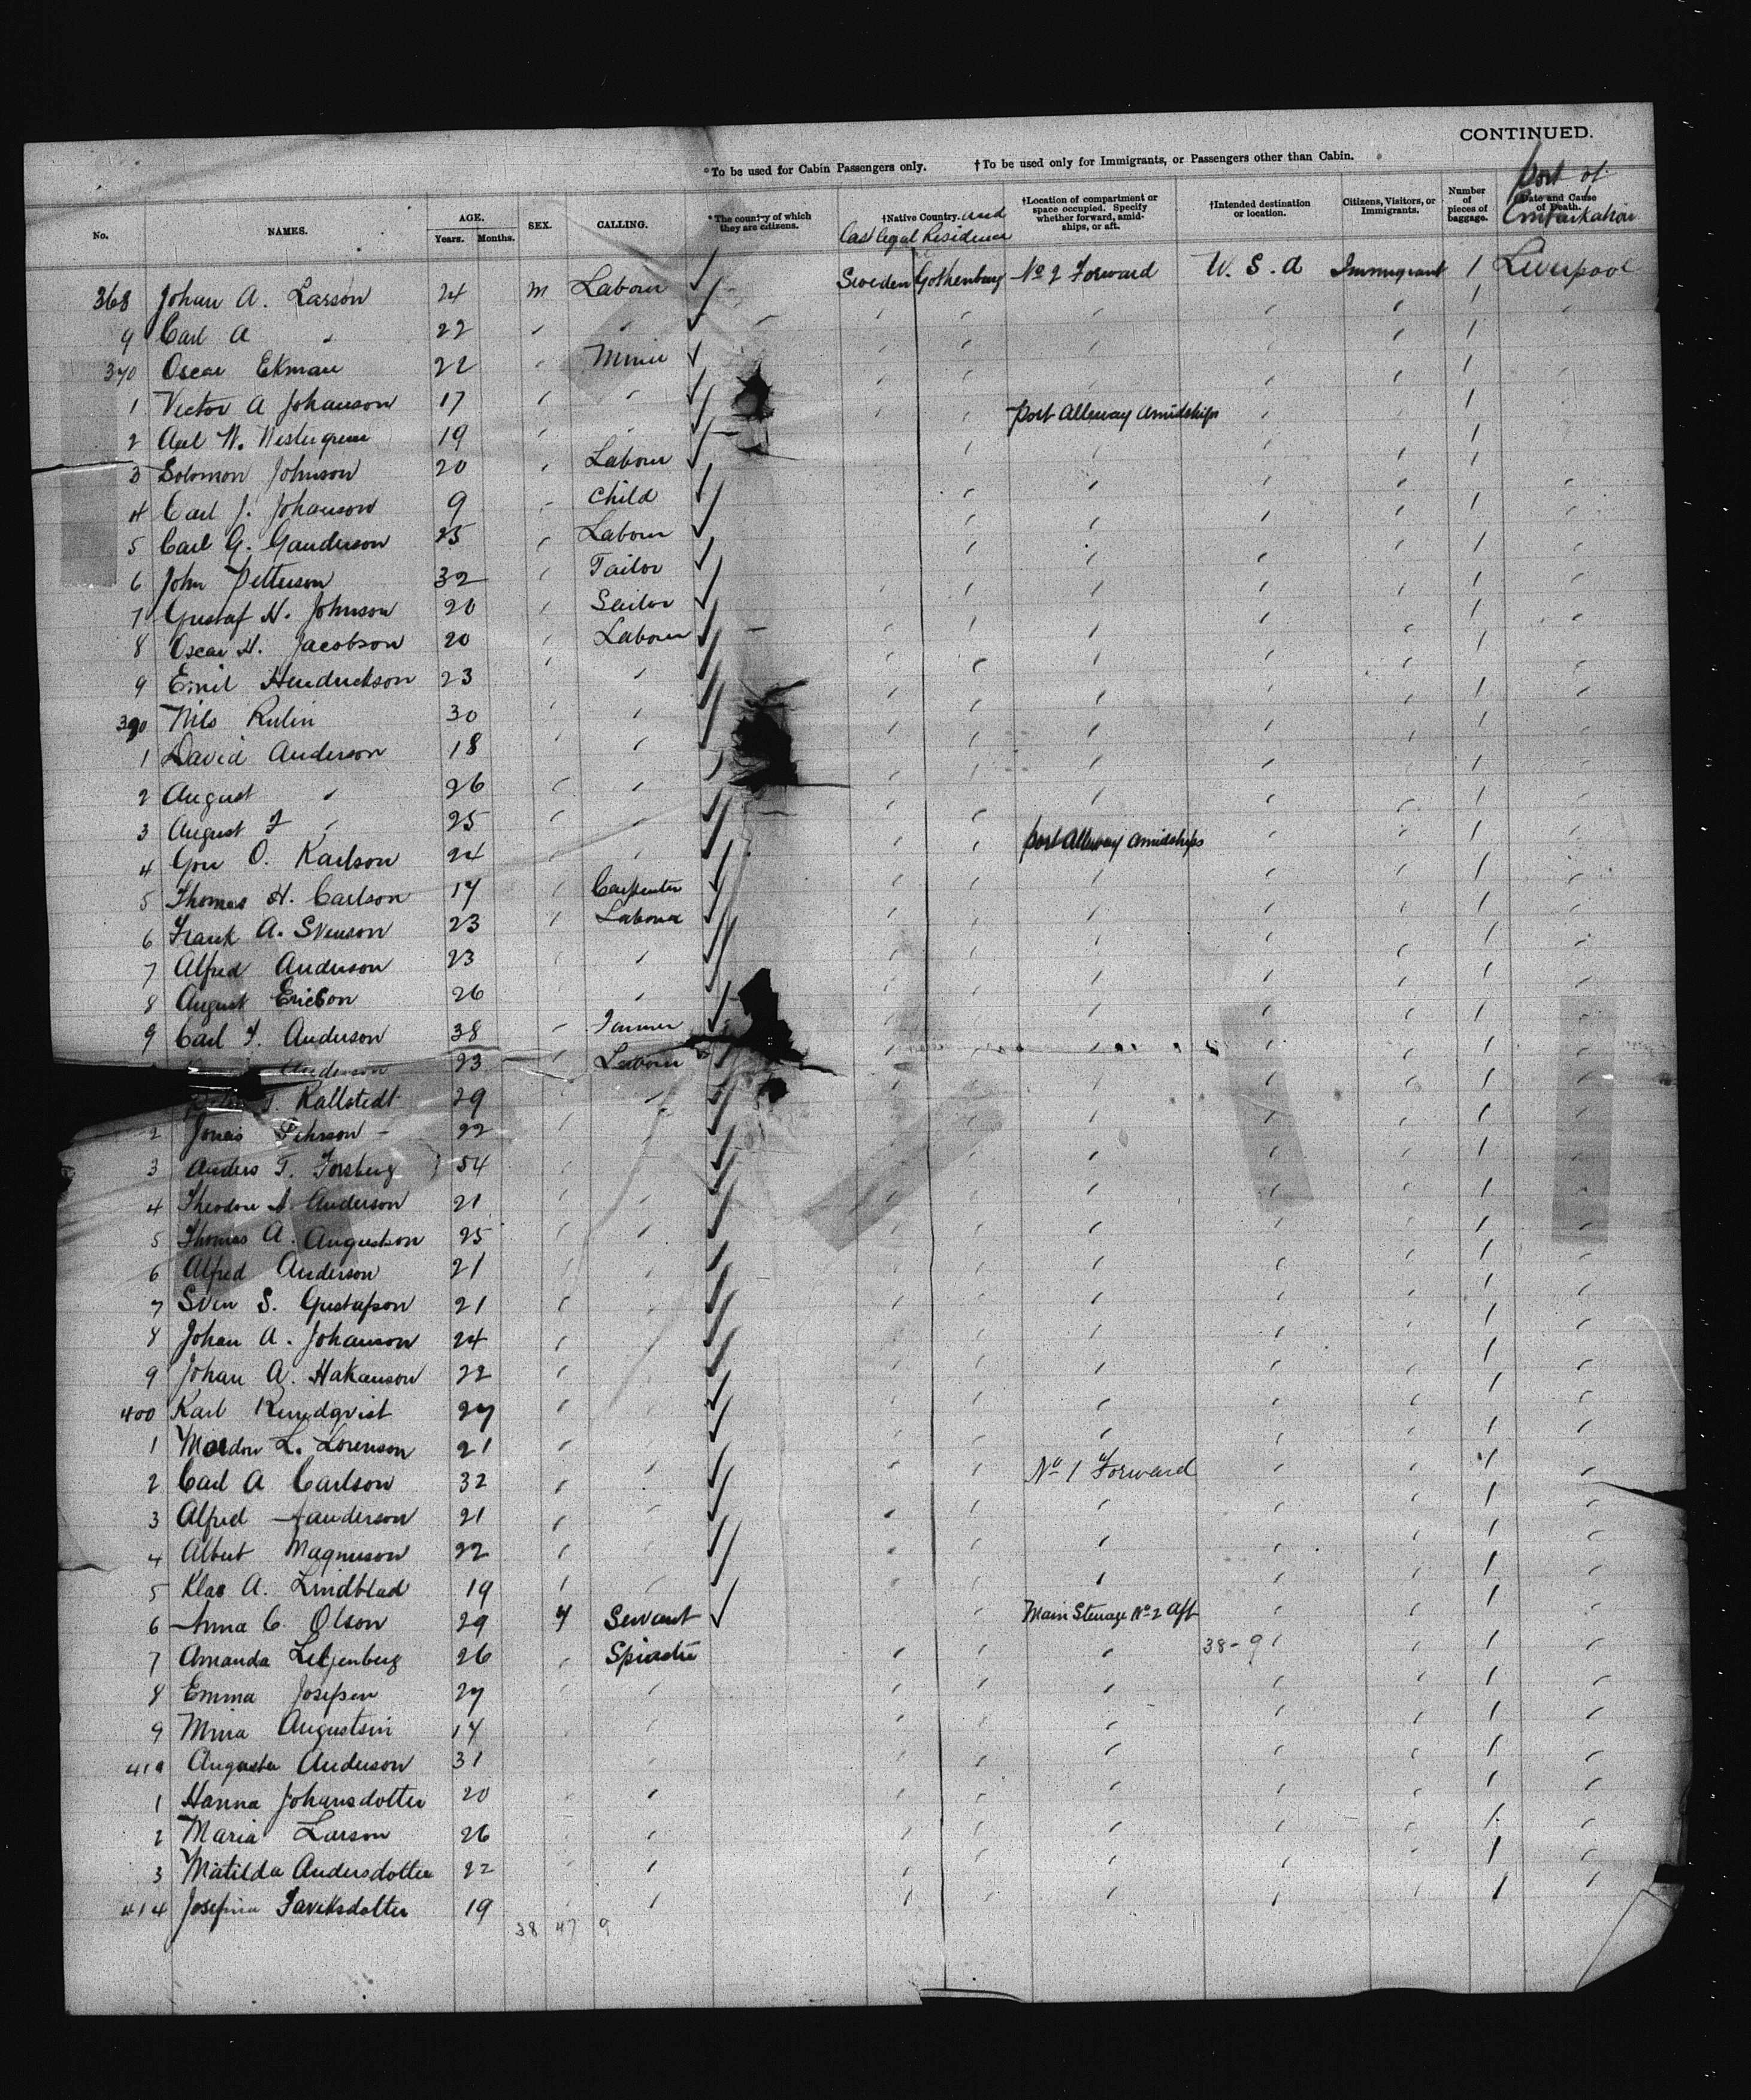 CONTINUED.
*To be used for Cabin Passengers only. †To be used only for Immigrants, or Passengers other than Cabin.
Port of Embarkation
No. NAMES. AGE. Years. Months. SEX. CALLING. *The country of which they are citizens. †Native Country. and Last legal Residence †Location of compartment or space occupied. Specify whether forward, amidships, or aft. †Intended destination or location. Citizens, Visitors, or Immigrants. Number of pieces of baggage. Date and Cause of Death.
368 Johan A. Larson 24 m Labour Sweden Gothenburg No 2 Forward U.S.A Immigrant 1 Liverpool
9 Carl A " 22 " " 1
370 Oscar Ekman 22 " Miner 1
1 Victor A Johanson 17 " " 1
2 Axel W. Westergren 19 " " Port Alleway Amidships 1
3 Solomon Johnson 20 " Labour 1
4 Carl J. Johanson 9 " Child 1
5 Carl G. Ganderson 25 " Labour 1
6 John Petterson 32 " Tailor 1
7 Gustaf H. Johnson 20 " Sailor 1
8 Oscar H. Jacobson 20 " Labour 1
9 Emil Hendrickson 23 " " 1
380 Nils Rulin 30 " " 1
1 David Anderson 18 " " 1
2 August " 26 " " 1
3 August F " 25 " " 1
4 O. Karlson 24 " " Port Alleway Amidships 1
5 Thomas H. Carlson 17 " Carpenter 1
6 Frank A. Svenson 23 " Labour 1
7 Alfred Anderson 23 " " 1
8 August Ericson 26 " " 1
9 Carl F. Anderson 38 " Farmer 1
Anderson 23 " Labour 1
Kallstedt 29 " " 1
2 Jonas Pehrson 22 " " 1
3 Anders T. Forsberg 54 " " 1
4 Theodore A Anderson 21 " " 1
5 Thomas A. Augustson 25 " " 1
6 Alfred Anderson 21 " " 1
7 Sven S. Gustafson 21 " " 1
8 Johan A. Johanson 24 " " 1
9 Johan A. Hakanson 22 " " 1
400 Karl 27 " " 1
1 L. Lorenson 21 " " 1
2 Carl A Carlson 32 " " No 1 Forward 1
3 Alfred Sanderson 21 " " 1
4 Albert Magnuson 22 " " 1
5 Klas A. Lindblad 19 " " 1
6 Anna C. Olson 29 f Servant Main Steerage No 2 Aft 1
7 Amanda 26 " Spinster 38-9 1
8 Emma Josefsen 27 " " 1
9 Mina Augustsin 17 " " 1
410 Augusta Anderson 31 " " 1
1 Hanna Johansdotter 20 " " 1
2 Maria Larson 26 " " 1
3 Matilda Andersdotter 22 " " 1
414 Josefina 19 " " 1
38 47 9